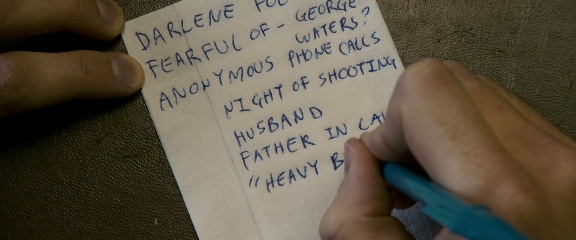 DARLENE
FEARFUL OF - GEORGE
WATERS?
ANONYMOUS PHONE CALLS
NIGHT OF SHOOTING
HUSBAND
FATHER IN
"HEAVY